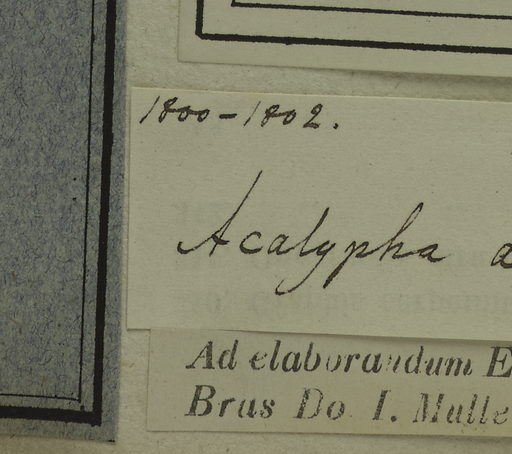 1800-1802.
Acalypha a
Ad elaborandum E
Bras Do I. Mulle